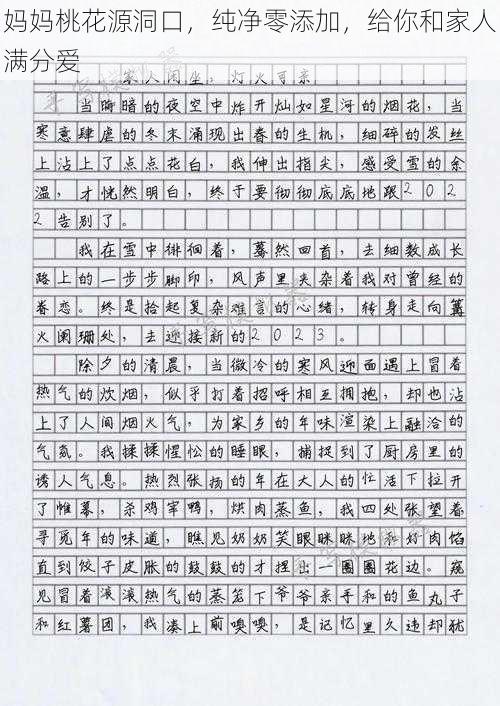 妈妈桃花源洞口，纯净零添加，给你和家人
满分爱
家人闲坐，灯火可亲
当晦暗的夜空中炸开灿如星河的烟花，当
寒意肆虐的冬末涌现出春的生机，细碎的发丝
上沾上了点点花白，我伸出指尖，感受雪的余
温，才恍然明白，终于要彻彻底底地跟202
2告别了。
我在雪中徘徊着，蓦然回首，去细数成长
路上的一步步脚印，风声里夹杂着我对曾经的
眷恋。终是拾起复杂难言的心绪，转身走向篝
火阑珊处，去迎接新的2023。
除夕的清晨，当微冷的寒风迎面遇上冒着
热气的炊烟，似乎打着招呼相互拥抱，却也沾
上了人间烟火气，为家乡的年味渲染上融洽的
气氛。我揉揉惺忪的睡眼，捕捉到了厨房里的
诱人气息。热烈张扬的年在大人的忙活下拉开
了帷幕，杀鸡宰鸭，烘肉蒸鱼，我四处张望着
寻觅年的味道，瞧见奶奶笑眼眯眯地和好肉馅
直到饺子皮胀的鼓鼓的才捏出一圈圈花边。窥
见冒着滚滚热气的蒸笼下爷爷亲手和的鱼丸子
和红薯团，我凑上前嗅嗅，是记忆里久违却犹